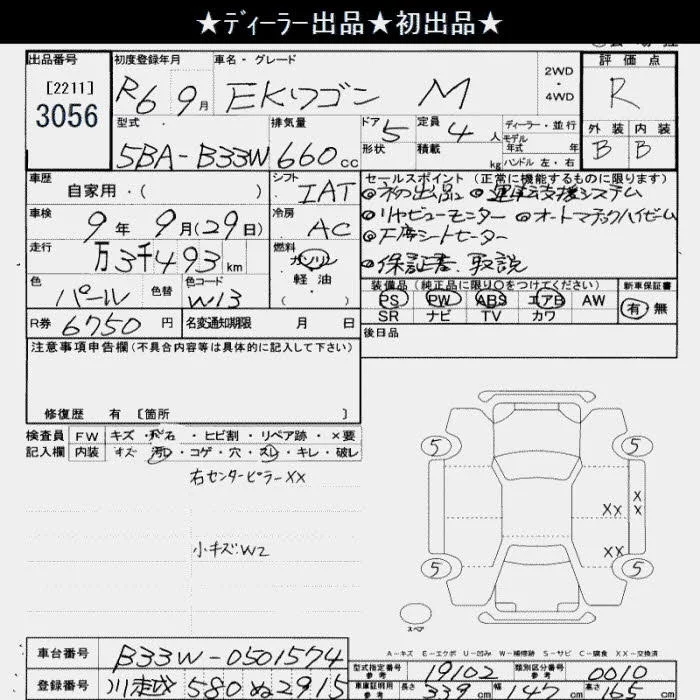 ★ディーラー出品★初出品★
出品番号 初度登録年月 車名・グレード 2WD・4WD 評価点
[2211]
3056 R6 9月 EKワゴン M R
型式 排気量 ドア 5 定員 4人 ディーラー・並行 外装 内装
形状 積載 kg モデル年式 年 B B
5BA-B33W 660cc ハンドル 左・右
車歴 シフト セールスポイント (正常に機能するものに限ります)
自家用・( ) IAT ◎初出品 ◎運転支援システム
車検 冷房 ◎リヤビューモニター ◎オートマチックハイビーム
9年 9月(29日) AC
走行 燃料 ◎下席シートヒーター
万3千493km ガソリン
軽油 ◎保証書、取説
色 色替 色コード ・( ) 装備品 (純正品に限り○をつけてください) 新車保証書
パール W13 PS PW ABS エアB AW 有 無
R券 6750円 名変通知期限 月 日 SR ナビ TV カワ
注意事項申告欄 (不具合内容等は具体的に記入して下さい) 後日品
修復歴 有 [箇所 ]
検査員 FW キズ・飛石・ヒビ割・リペア跡・×要
記入欄 内装 キズ・汚レ・コゲ・穴・スレ・キレ・破レ
右センターピラーXX
小キズ:W2
5 5
XX X
X
XX
5 5
スペア
A-キズ E-エクボ U-凹み W-補修跡 S-サビ C-腐食 XX-交換済
車台番号 B33W-0501574 型式指定番号 参考 19102 類別区分番号 参考 0010
登録番号 580 ぬ2915 車庫証明用 参考 長さ 339cm 幅 147cm 高さ 165cm